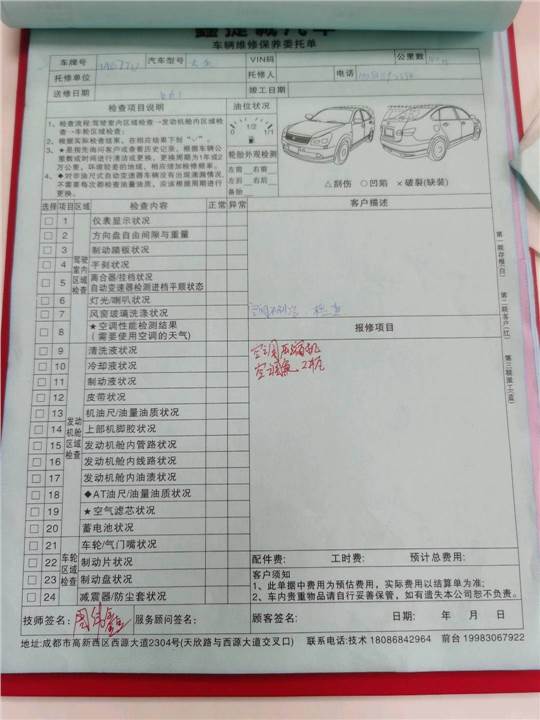 车辆维修保养委托单
车牌号 汽车型号 VIN码 公里数
托修单位 托修人 电话
送修日期 竣工日期
检查项目说明
1、检查流程:驾驶室内区域检查→发动机舱内区域检查→车轮区域检查;
2、根据实际检查结果,在相应结果下划"✓"。
3、★是指先询问客户或查看历史记录,根据车辆公里数或时间进行清洁或更换,更换周期为1年或2万公里,环境较差的地域,相应增加检修频率。
4、◆对非油尺式自动变速器车辆没有出现滴漏情况,不需要每次都检查油量油质,沿该根据周期进行更换。
油位状况
0 1/2 1/1
轮胎外观检测
左前 右前
左后 右后
备胎
△刮伤 ○凹陷 ×破裂(缺装)
选择 项目 区域 检查内容 正常 异常
驾驶室内区域检查
1 仪表显示状况
2 方向盘自由间隙与重量
3 制动踏板状况
4 手刹状况
5 离合器/挂档状况
自动变速器检测进档平顺状态
6 灯光/喇叭状况
7 风窗玻璃洗涤状况
8 ★空调性能检测结果
(需要使用空调的天气)
发动机舱区域检查
9 清洗液状况
10 冷却液状况
11 制动液状况
12 皮带状况
13 机油尺/油量油质状况
14 上部机脚胶状况
15 发动机舱内管路状况
16 发动机舱内线路状况
17 发动机舱内油渍状况
18 ◆AT油尺/油量油质状况
19 ★空气滤芯状况
20 蓄电池状况
车轮区域检查
21 车轮/气门嘴状况
22 制动片状况
23 制动盘状况
24 减震器/防尘套状况
客户描述
空调不制冷 检查
报修项目
空调压缩机
第一联存根(白)
第二联客户(红)
第三联派工(蓝)
配件费: 工时费: 预计总费用:
客户须知
1、此单据中费用为预估费用,实际费用以结算单为准;
2、车内贵重物品请自行妥善保管,如有遗失本公司恕不负责。
技师签名: 服务顾问签名: 顾客签名: 日期: 年 月 日
地址:成都市高新西区西源大道2304号(天欣路与西源大道交叉口) 联系电话:技术 18086842964 前台 19983067922